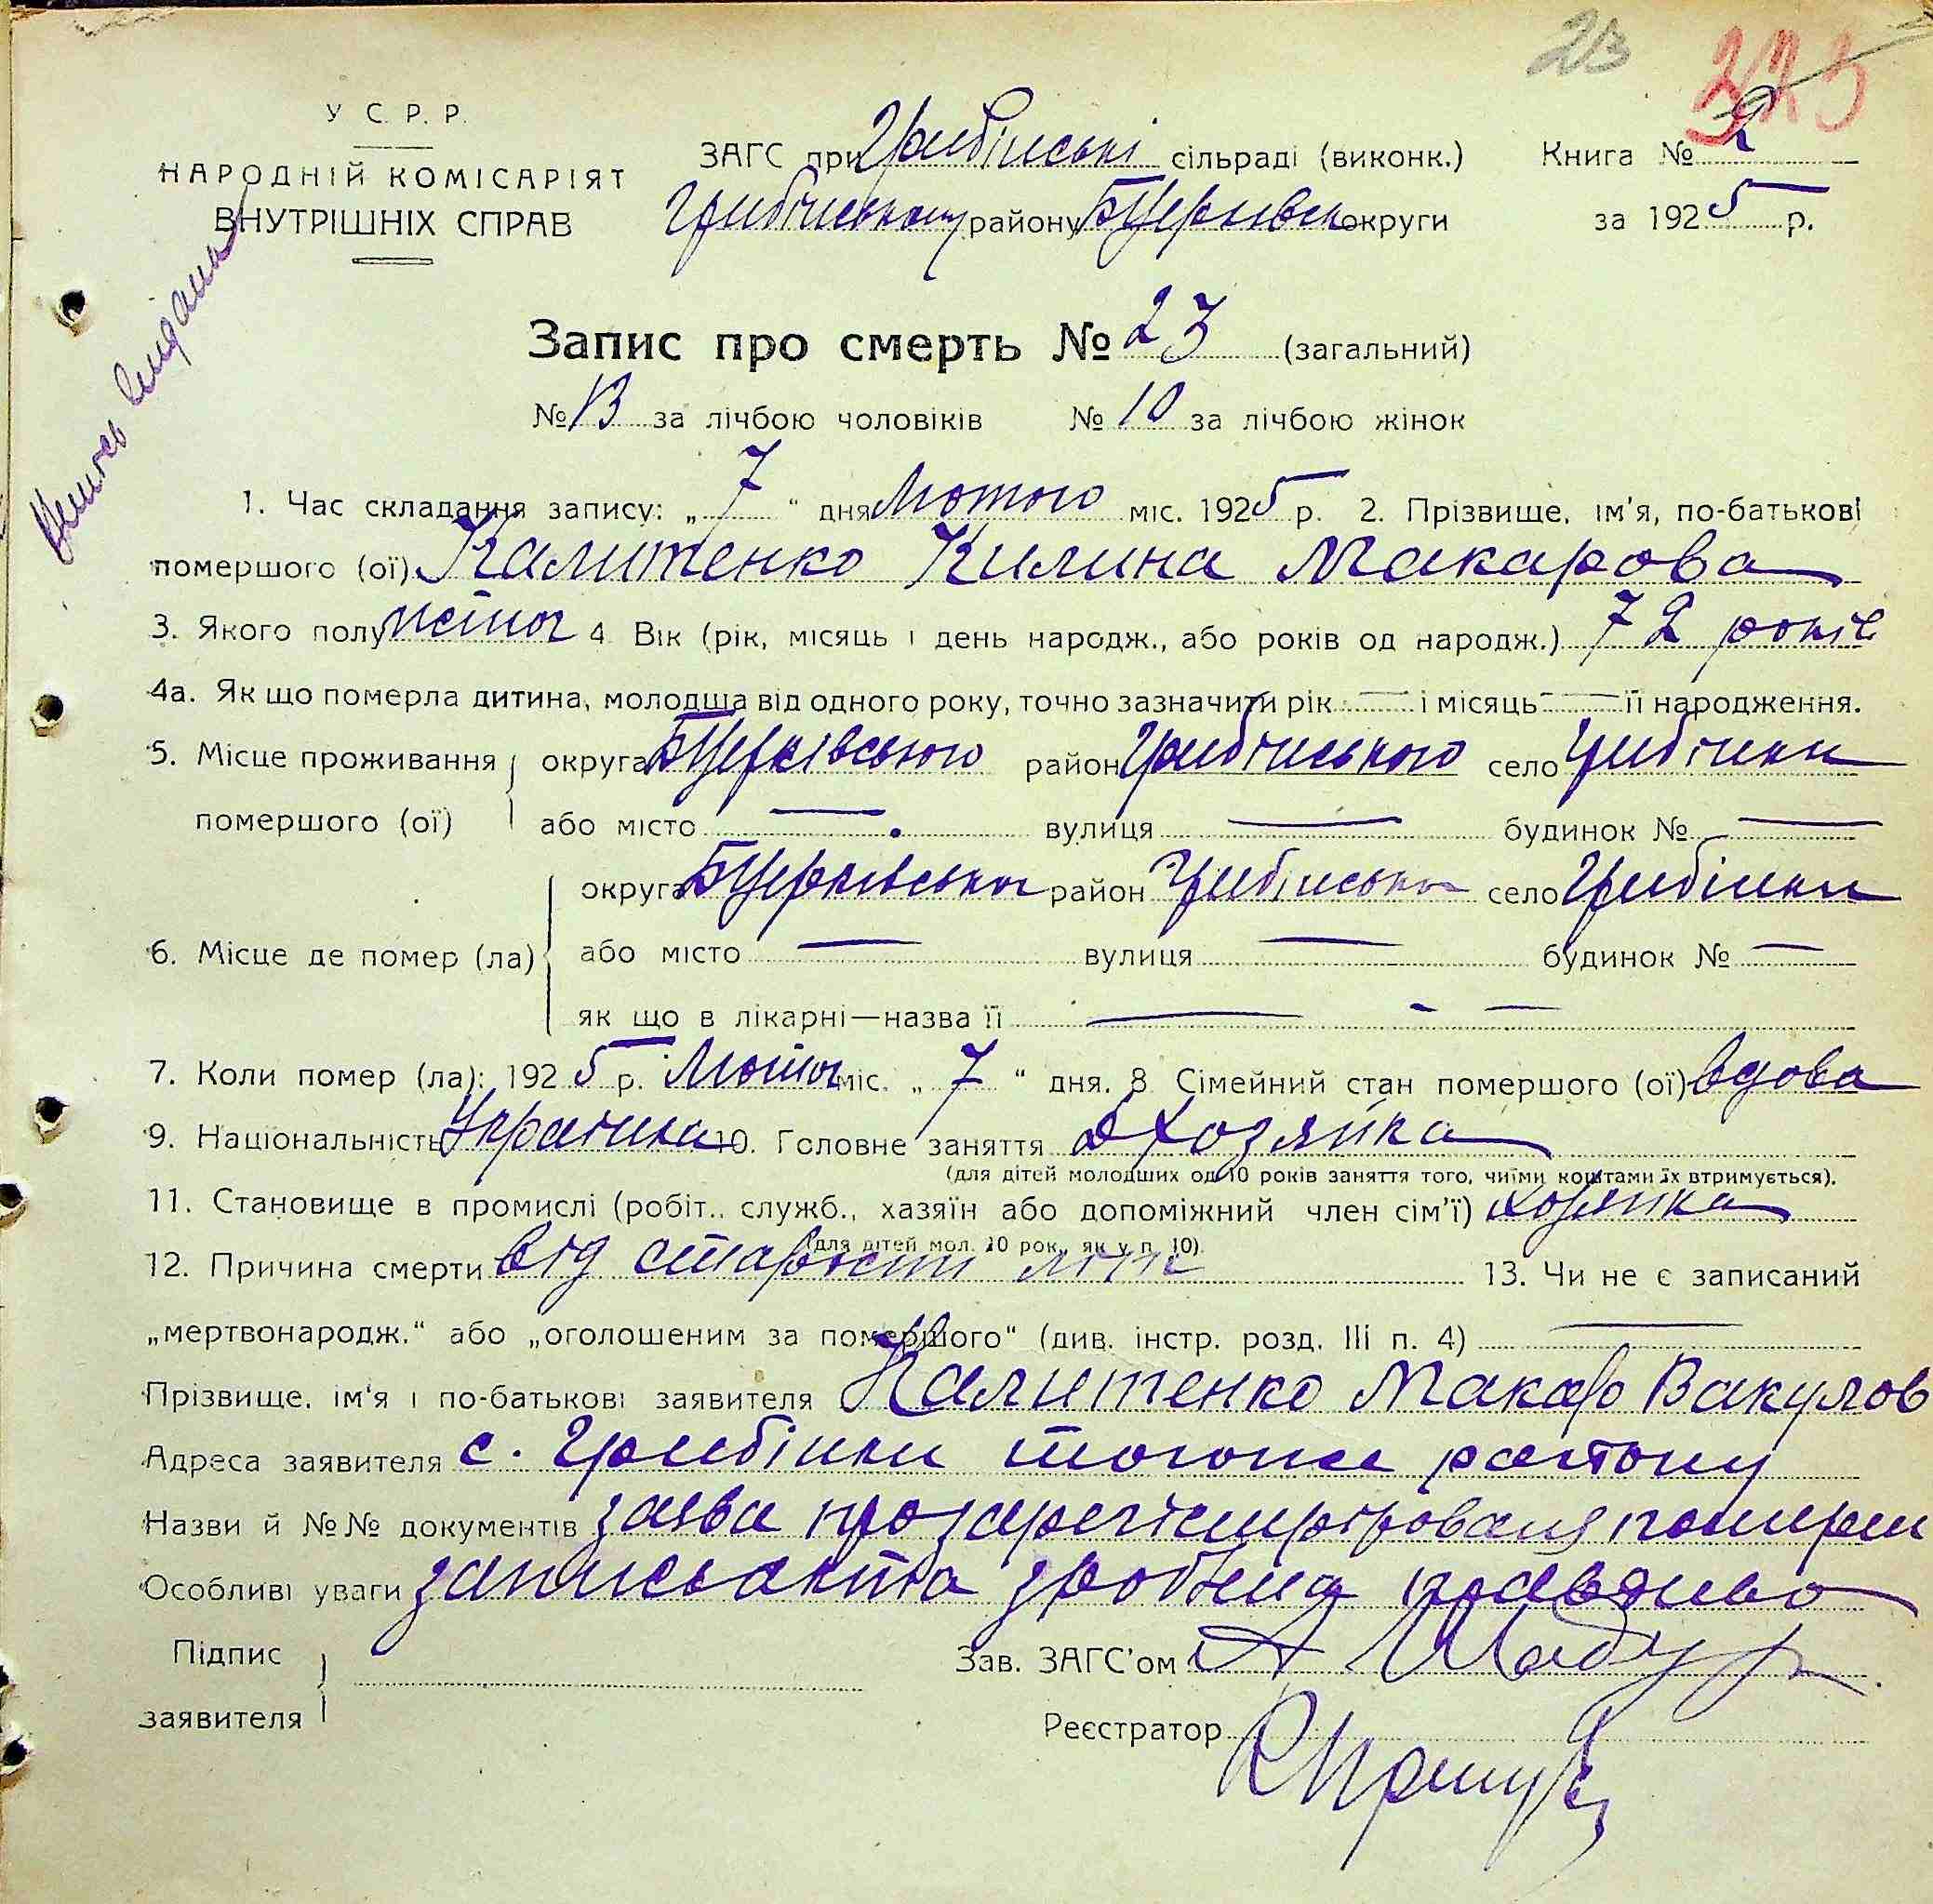 23 323
У С. Р. Р.
НАРОДНІЙ КОМІСАРІЯТ
ВНУТРІШНІХ СПРАВ
ЗАГС при Гребінські сільраді (виконк.) Книга № 2
Гребінському району БЦерковск округи за 1925 р.
Запис про смерть № 23 (загальний)
№ 13 за лічбою чоловіків № 10 за лічбою жінок
1. Час складання запису: „ 7 “ дня Лютого міс. 1925 р. 2. Прізвище, ім'я, по-батькові
помершого (ої) Калитенко Килина Макарова
3. Якого полу 4 Вік (рік, місяць і день народж., або років од народж.) 72 років
4а. Як що померла дитина, молодша від одного року, точно зазначити рік — і місяць — її народження.
5. Місце проживання округа БЦерківського район Гребінського село Гребінки
помершого (ої) або місто — вулиця — будинок № —
округа БЦерківська район Гребінська село Гребінки
6. Місце де помер (ла) або місто — вулиця — будинок № —
як що в лікарні—назва її — - —
7. Коли помер (ла): 1925 р. Лютого міс. „ 7 “ дня. 8 Сімейний стан помершого (ої) вдова
9. Національність Українка 10. Головне заняття Дхозяйка
(для дітей молодших од 10 років заняття того, чиїми коштами їх втримується).
11. Становище в промислі (робіт.. служб., хазяїн або допоміжний член сім'ї) хозяйка
(для дітей мол. 10 рок., як у п. 10).
12. Причина смерти від старости літ 13. Чи не є записаний
„мертвонародж.“ або „оголошеним за помершого“ (див. інстр. розд. III п. 4) —
Прізвище, ім'я і по-батькові заявителя Калитенко Макар Вакулов
Адреса заявителя с. Гребінки того ж району
Назви й №№ документів заява про
Особливі уваги запись акта
Підпис
заявителя
Зав. ЗАГС'ом
Реєстратор